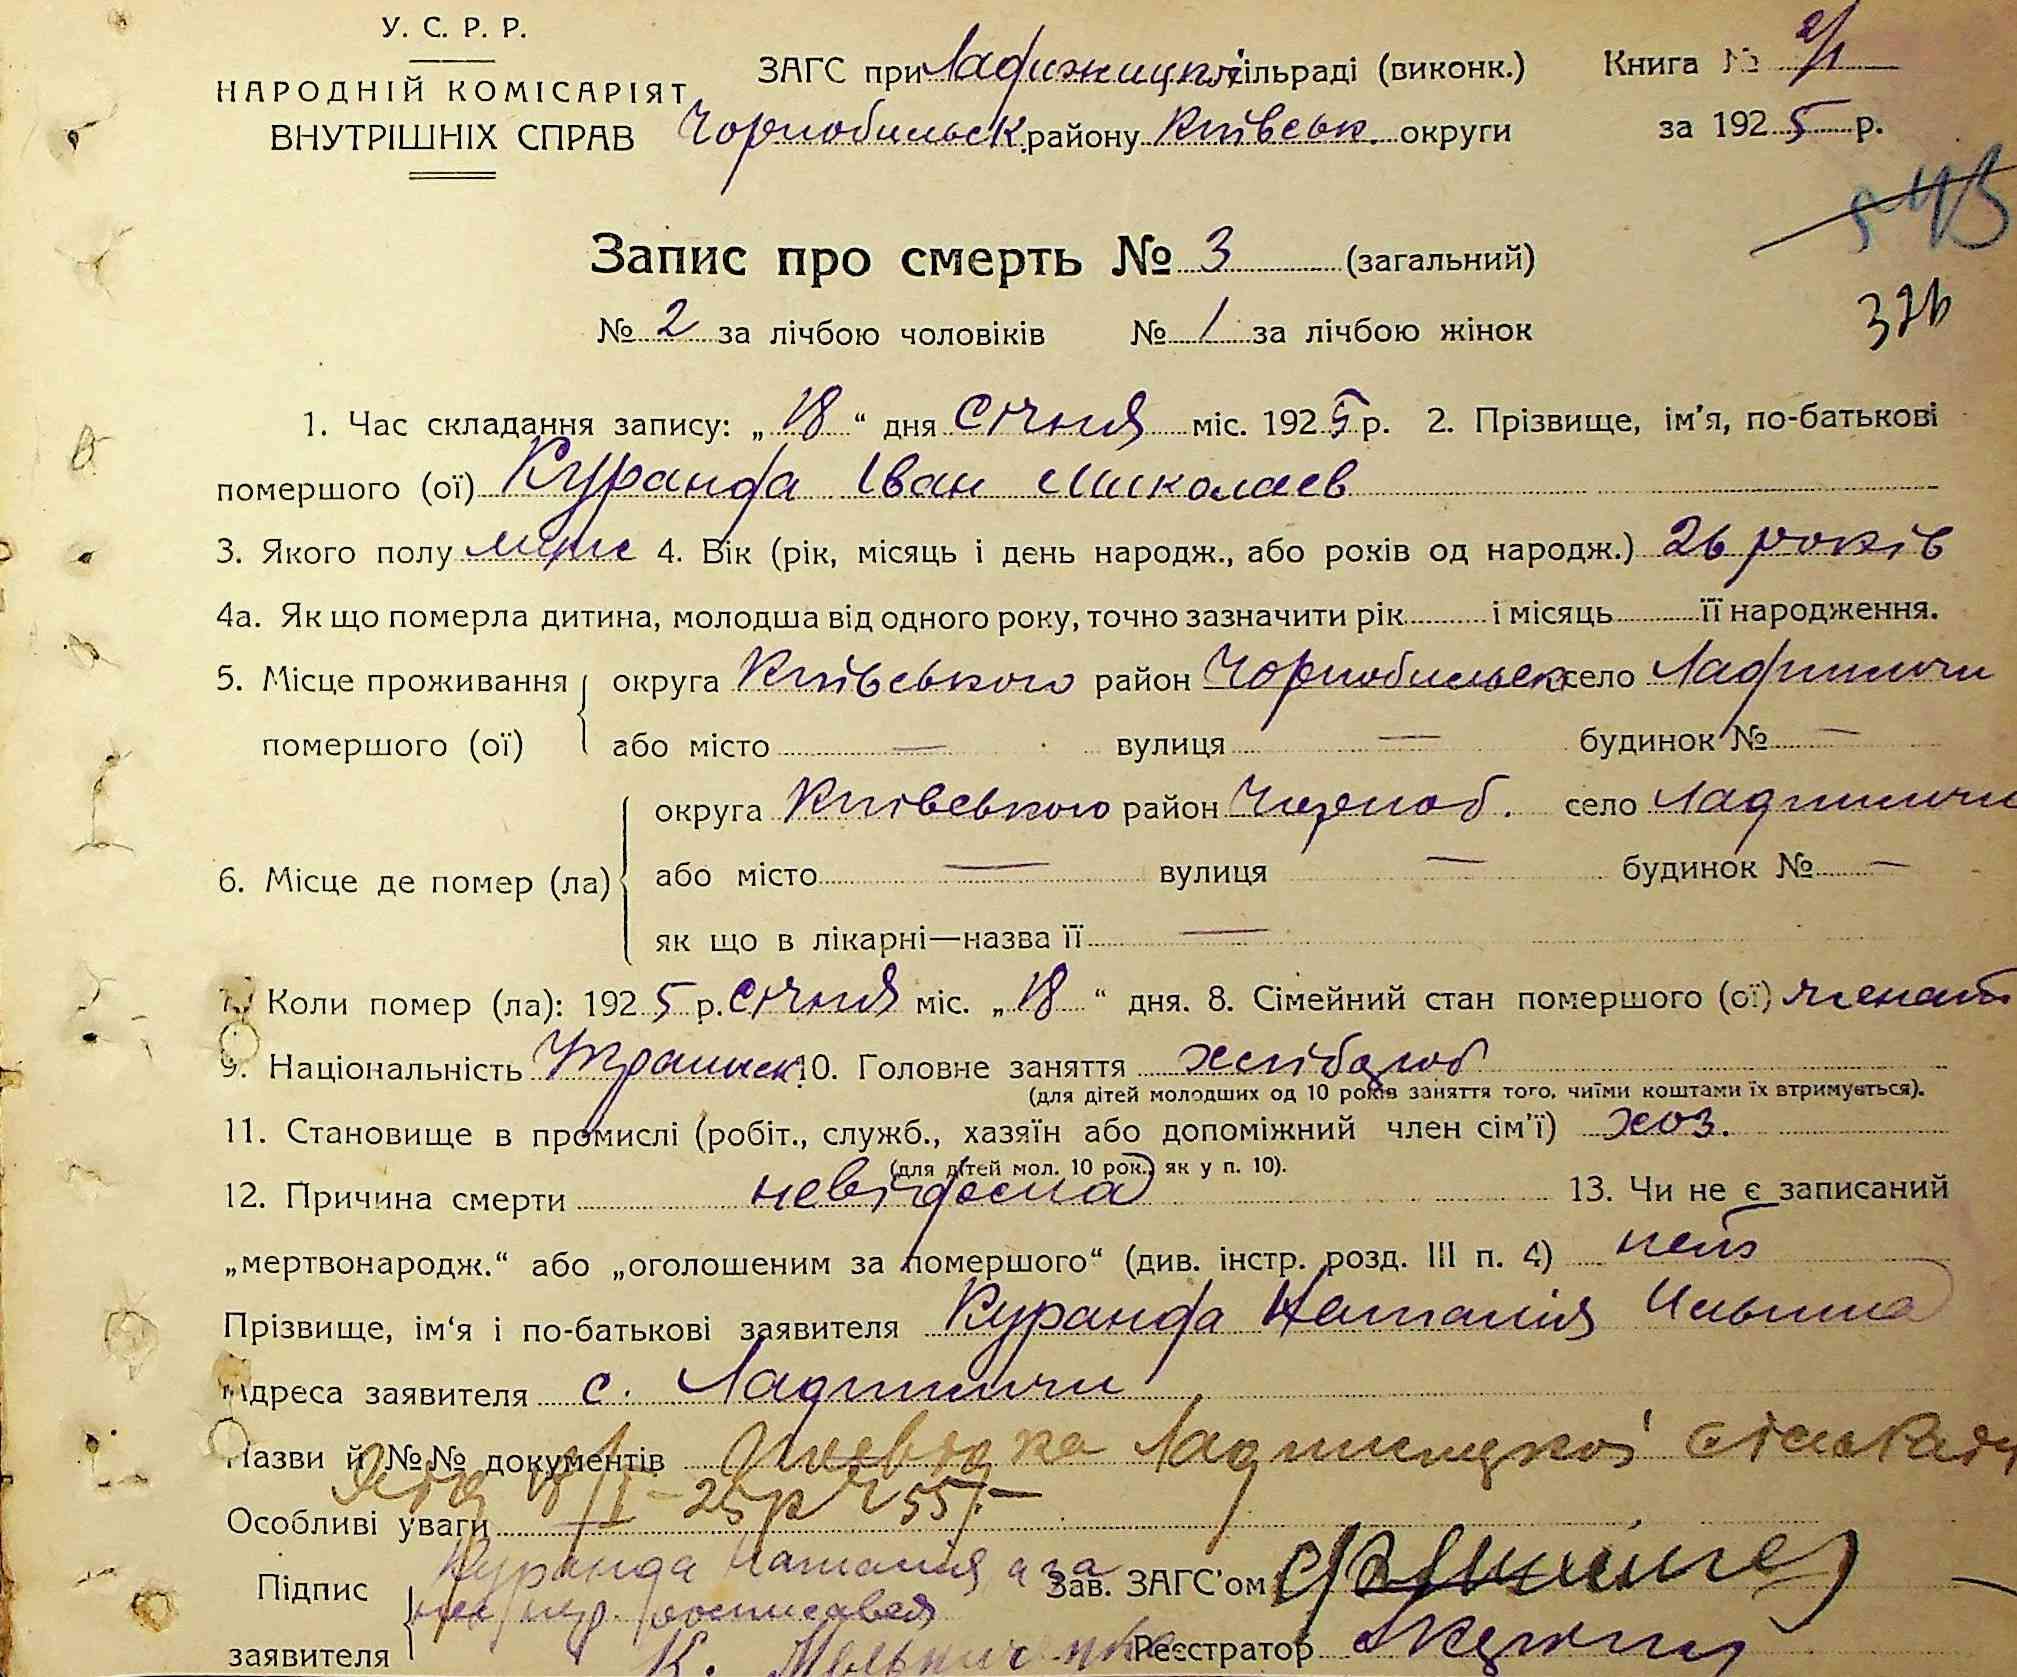 У. С. Р. Р.
НАРОДНІЙ КОМІСАРІЯТ
ВНУТРІШНІХ СПРАВ
ЗАГС при Ладижицкій сільраді (виконк.)
Чорнобильськ. району Київськ. округи
Книга № 2/1
за 1925 р.
Запис про смерть № 3 (загальний)
326
№ 2 за лічбою чоловіків № 1 за лічбою жінок
1. Час складання запису: „18“ дня Січня міс. 1925 р. 2. Прізвище, ім'я, по-батькові
помершого (ої) Куранда Іван Миколаєв
3. Якого полу муже 4. Вік (рік, місяць і день народж., або років од народж.) 26 років
4а. Як що померла дитина, молодша від одного року, точно зазначити рік і місяць її народження.
5. Місце проживання округа Київського район Чорнобильськ село Ладижичи
помершого (ої) або місто — вулиця — будинок № —
округа Київського район Чорноб. село Ладижичи
6. Місце де помер (ла) або місто — вулиця — будинок № —
як що в лікарні—назва її —
7. Коли помер (ла): 1925 р. Січня міс. „18“ дня. 8. Сімейний стан помершого (ої) женат
9. Національність Україньск. 10. Головне заняття хлібороб
(для дітей молодших од 10 років заняття того, чиїми коштами їх втримується).
11. Становище в промислі (робіт., служб., хазяїн або допоміжний член сім'ї) хоз.
(для дітей мол. 10 рок., як у п. 10).
12. Причина смерти невідома 13. Чи не є записаний
„мертвонародж.“ або „оголошеним за помершого“ (див. інстр. розд. III п. 4) нет
Прізвище, ім'я і по-батькові заявителя Куранда Наталія Ильина
Адреса заявителя с. Ладижичи
Назви й №№ документів Ладижицкої сільради
18/I-25р № 55
Особливі уваги
Підпис Куранда Наталія а за Зав. ЗАГС'ом
нег росписався
заявителя К. Мельниченко Реєстратор